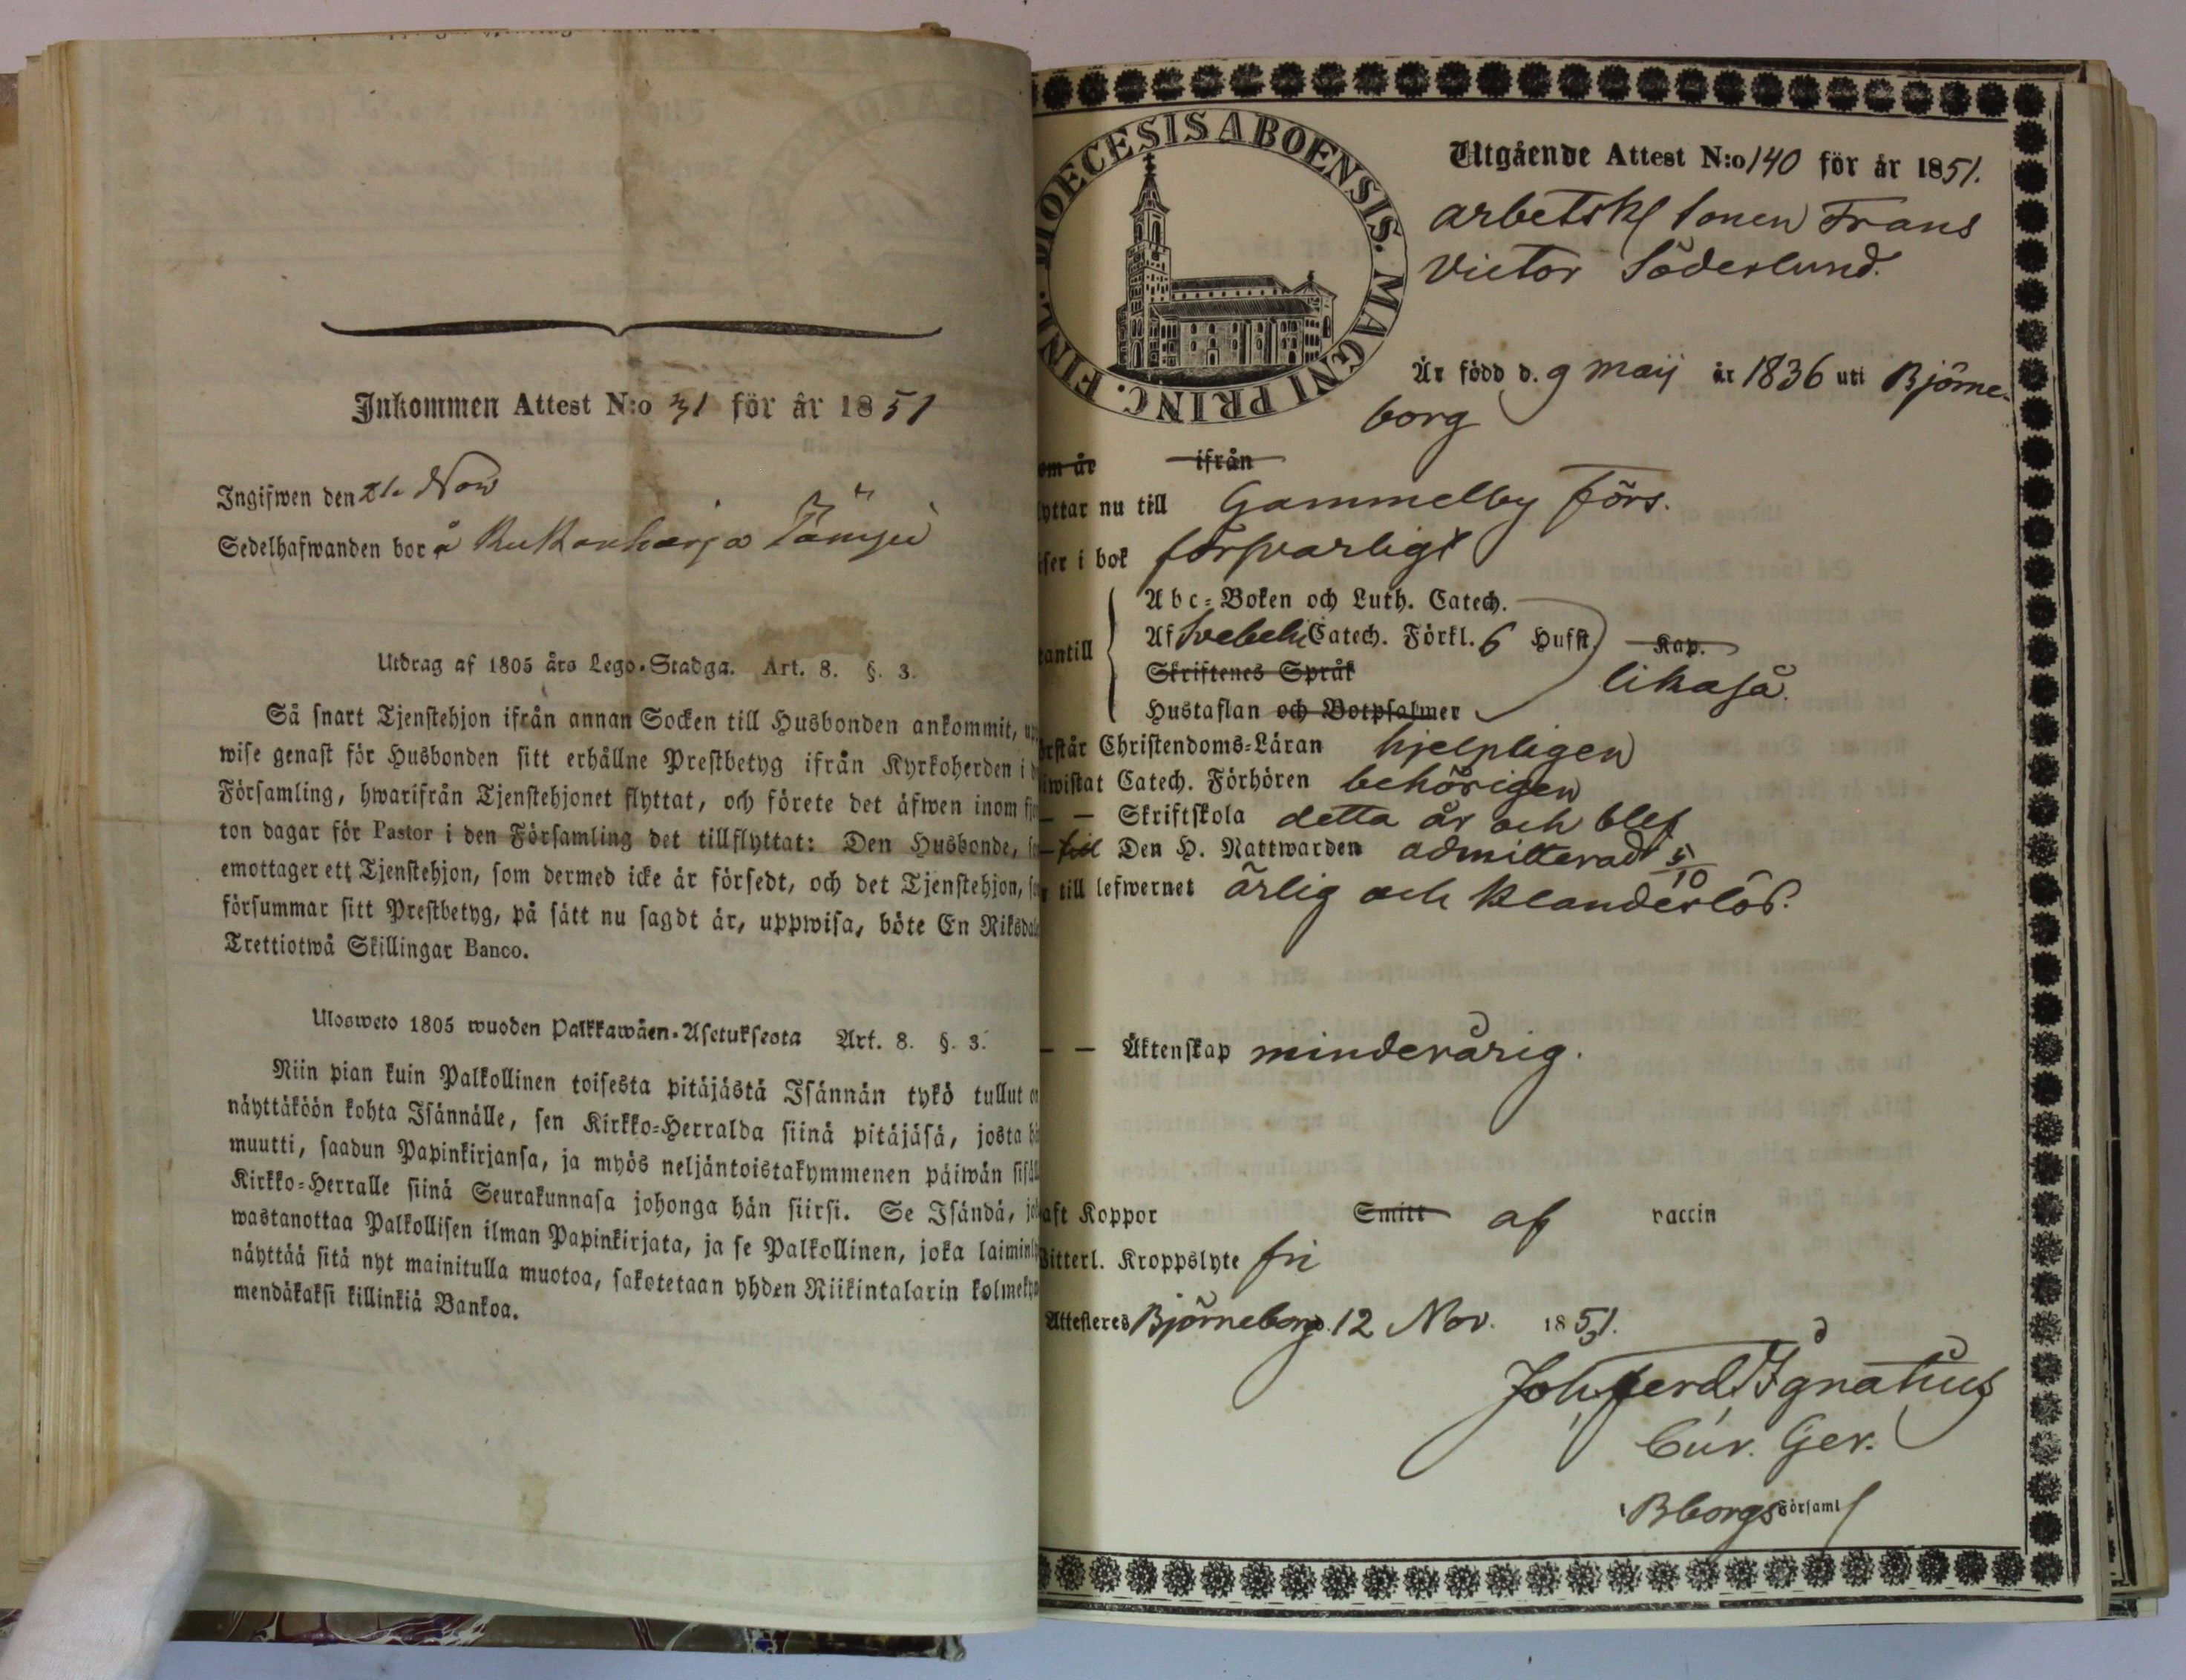 Inkommen Attest N:o 31 för år 1851
Ingifwen den 21. Nov
Sedelhafwanden bor å
Utdrag af 1805 års Lego-Stadga. Art. 8. §. 3.
Så snart Tjenstehjon ifrån annan Socken till Husbonden ankommit, upp
wise genast för Husbonden sitt erhållne Prestbetyg ifrån Kyrkoherden i d
Församling, hwarifrån Tjenstehjonet flyttat, och förete det äfwen inom fjor
ton dagar för Pastor i den Församling det tillflyttat: Den Husbonde, so
emottager ett Tjenstehjon, som dermed icke är försedt, och det Tjenstehjon, so
försummar sitt Prestbetyg, på sätt nu sagdt är, uppwisa, böte En Riksdale
Trettiotwå Skillingar Banco.
Ulosweto 1805 wuoden Palkkawäen-Asetuksesta Art. 8. §. 3.
Niin pian kuin Palkollinen toisesta pitäjästä Isännän tykö tullut on
näyttäköön kohta Isännälle, sen Kirkko-Herralda siinä pitäjäsä, josta hä
muutti, saadun Papinkirjansa, ja myös neljäntoistakymmenen päiwän sisäl
Kirkko-Herralle siinä Seurakunnasa johonga hän siirsi. Se Isändä, jok
wastanottaa Palkollisen ilman Papinkirjata, ja se Palkollinen, joka laiminly
näyttää sitä nyt mainitulla muotoa, sakotetaan yhden Riikintalarin kolmeky
mendäkaksi killinkiä Bankoa.
DIOECESIS ABOENSIS. MAGNI PRINC. FINL.
Utgående Attest N:o 140 för år 1851.
arbetsk sonen Frans
Victor Söderlund.
Är född d. 9 maij år 1836 uti Björne-
borg
om är ifrån
yttar nu till Gammelby förs.
äser i bok försvarligt
Abc-Boken och Luth. Catech.
utantill Af Svebelii Catech. Förkl. 6 Hufst. Kap.
Skriftenes Språk likaså.
Hustaflan och Botpsalmer
örstår Christendoms-Läran hjelpligen
iwistat Catech. Förhören behörigen
— — Skriftskola detta år och blef
— till Den H. Nattwarden admitterad 5/10
r till lefwernet ärlig och klanderlös.
— — Äktenskap minderårig.
aft Koppor Smitt af vaccin
Witterl. Kroppslyte fri
Attesteres Björneborg d. 12 Nov. 1851.
Joh. Ferd. Ignatius
Cur. Ger.
i Bborgs Församl